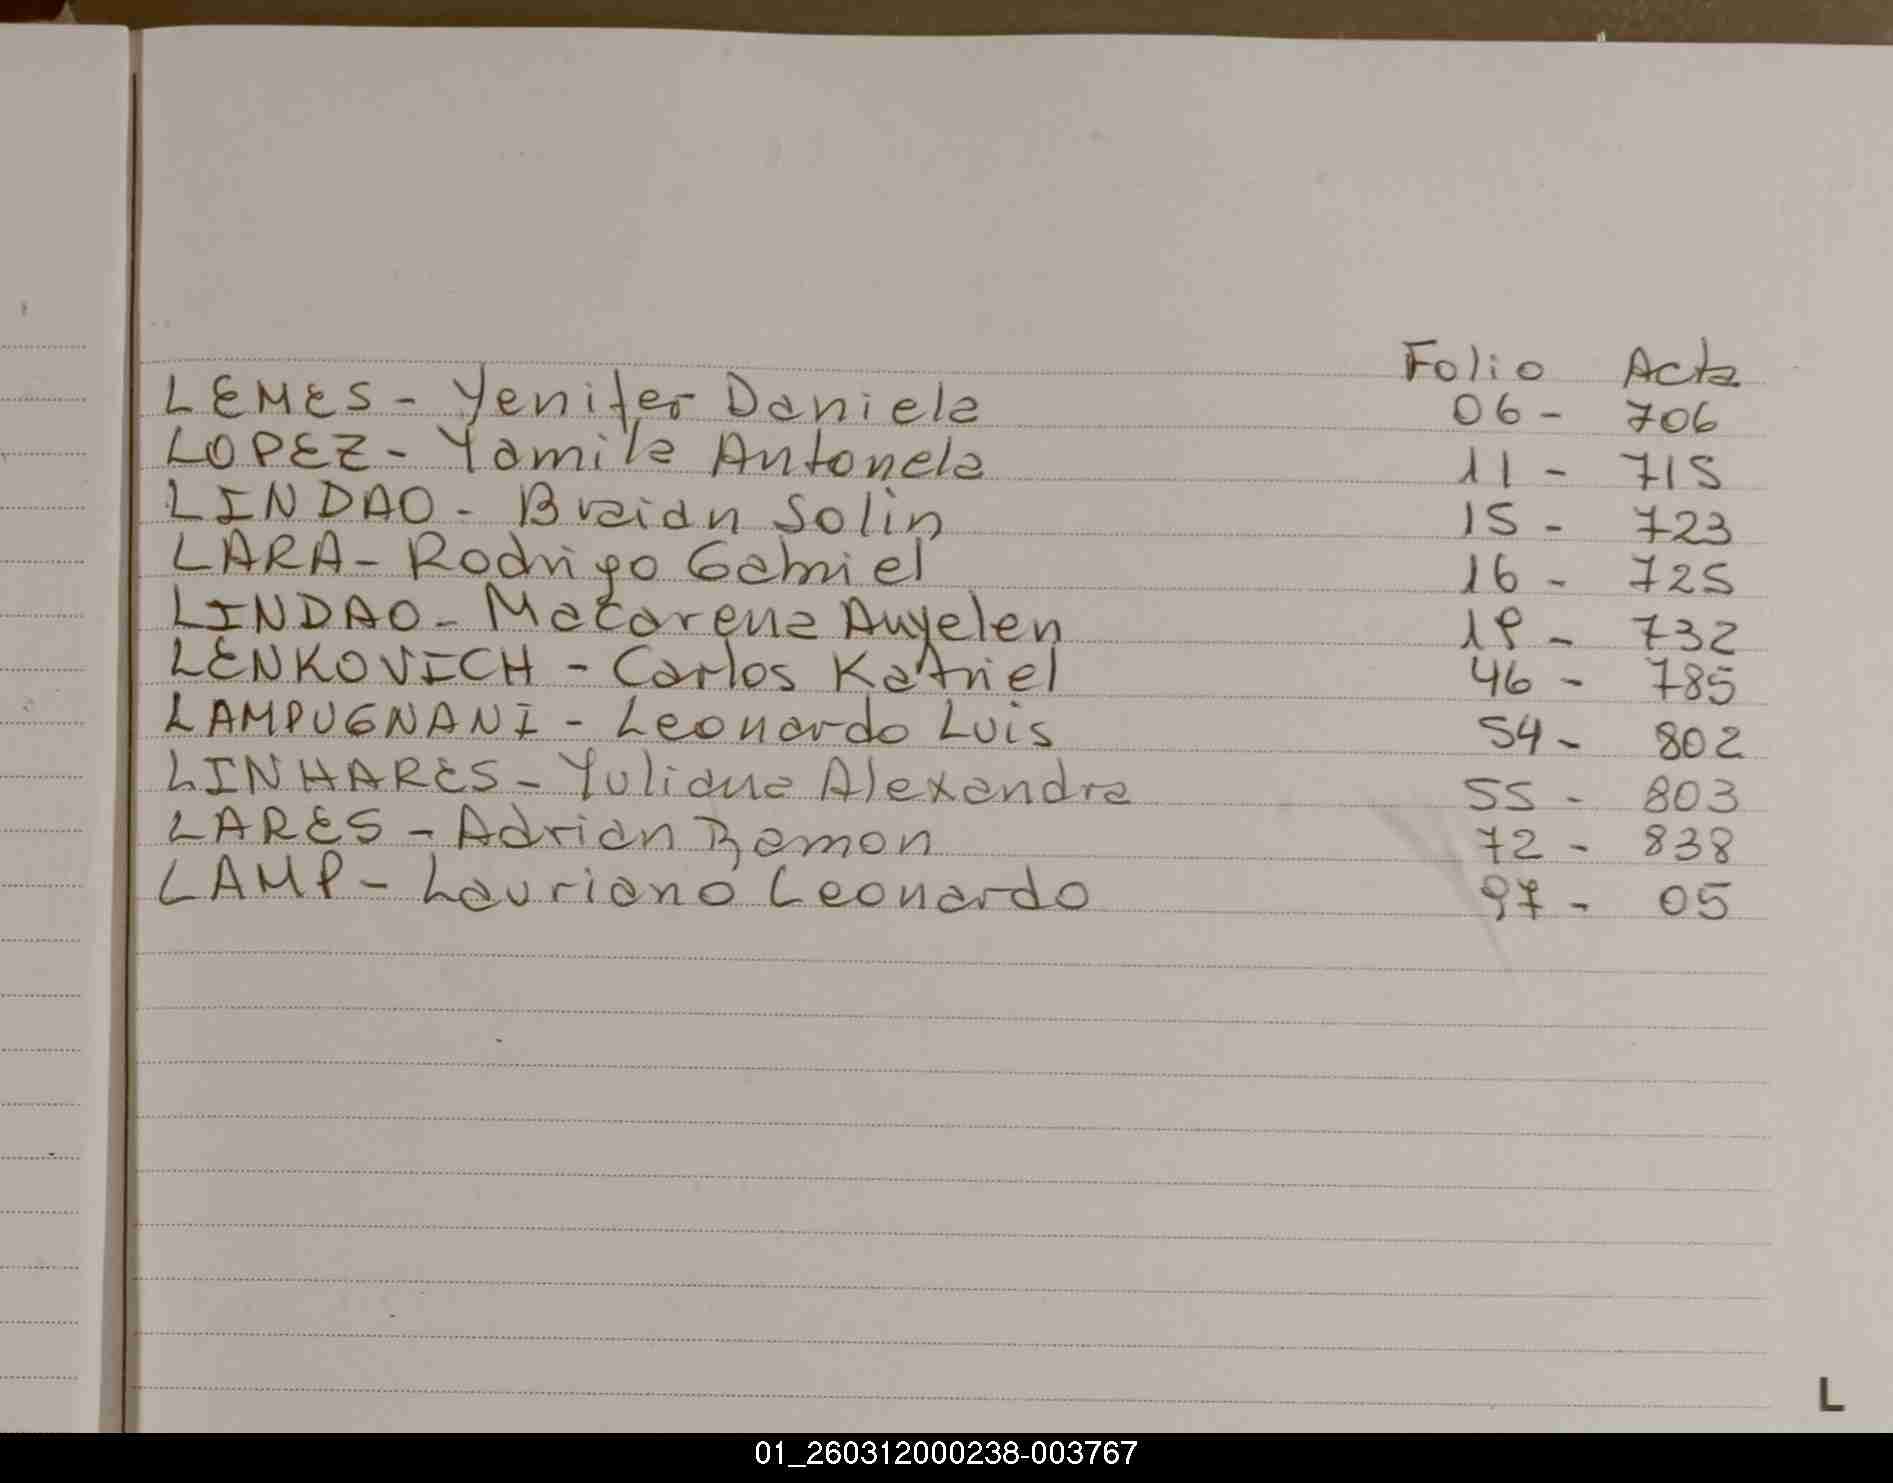 Folio Acta
LEMES - Yenifer Daniela 06 - 706
LOPEZ - Yamila Antonela 11 - 715
LINDAO - Braian Solin 15 - 723
LARA - Rodrigo Gabriel 16 - 725
LINDAO - Macarena Auyelen 19 - 732
LENKOVICH - Carlos Katriel 46 - 785
LAMPUGNANI - Leonardo Luis 54 - 802
LINHARES - Yuliana Alexandra 55 - 803
LARES - Adrian Ramon 72 - 838
LAMP - Lauriano Leonardo 97 - 05
L
01_260312000238-003767